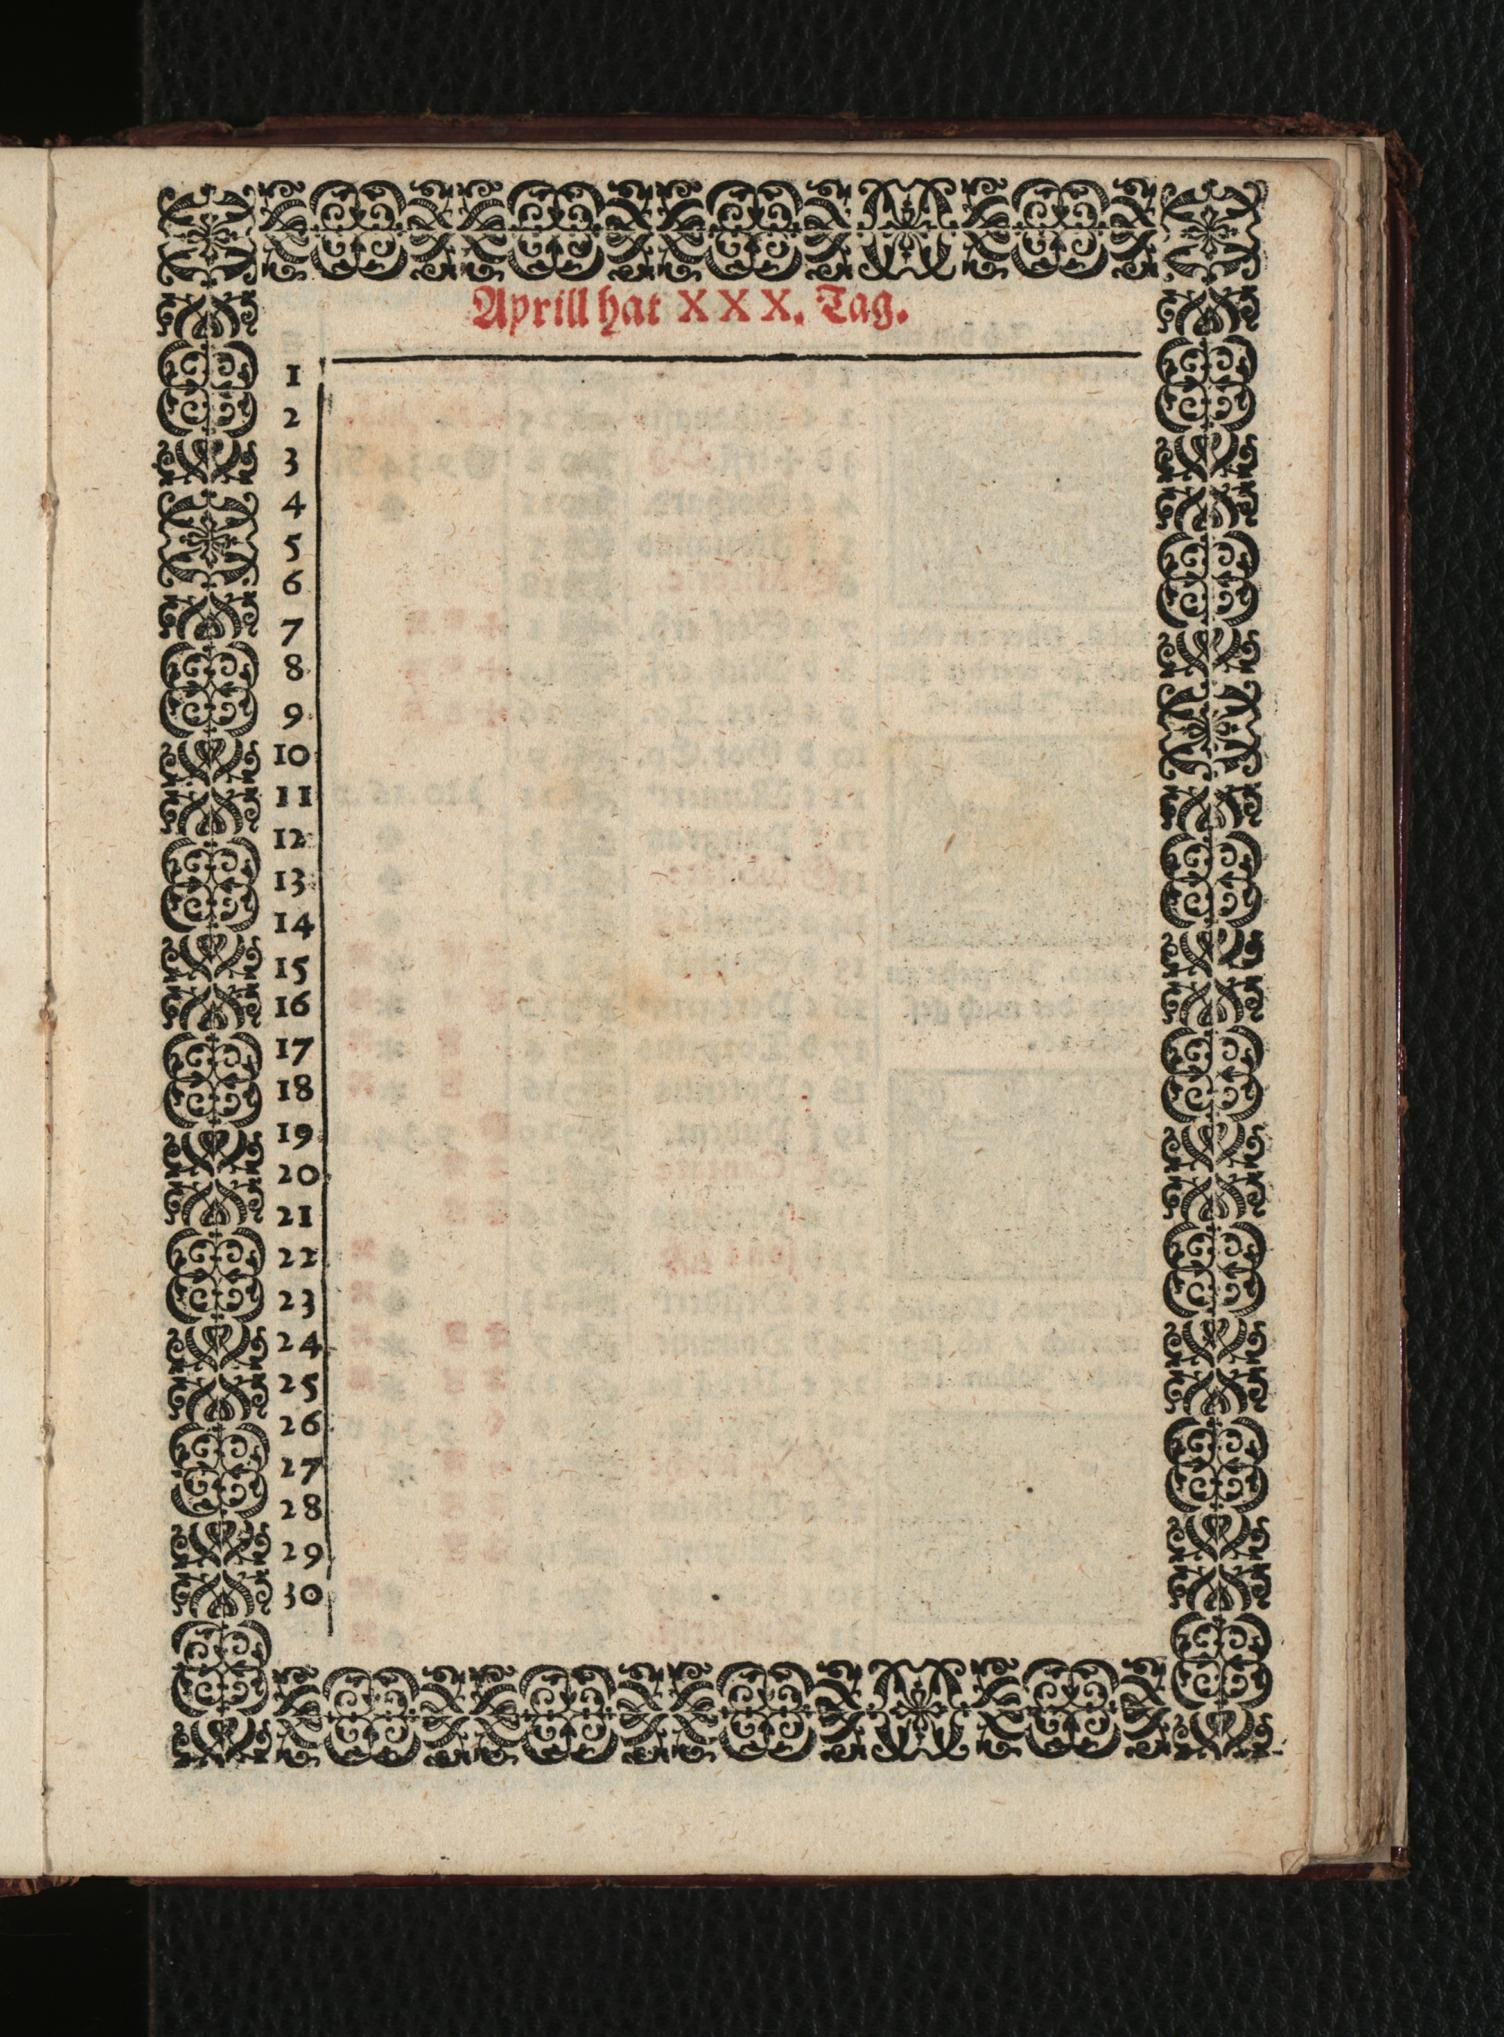 Aprill hat XXX. Tag.
1
2
3
4
5
6
7
8
9
10
11
12
13
14
15
16
17
18
19
20
21
22
23
24
25
26
27
28
29
30